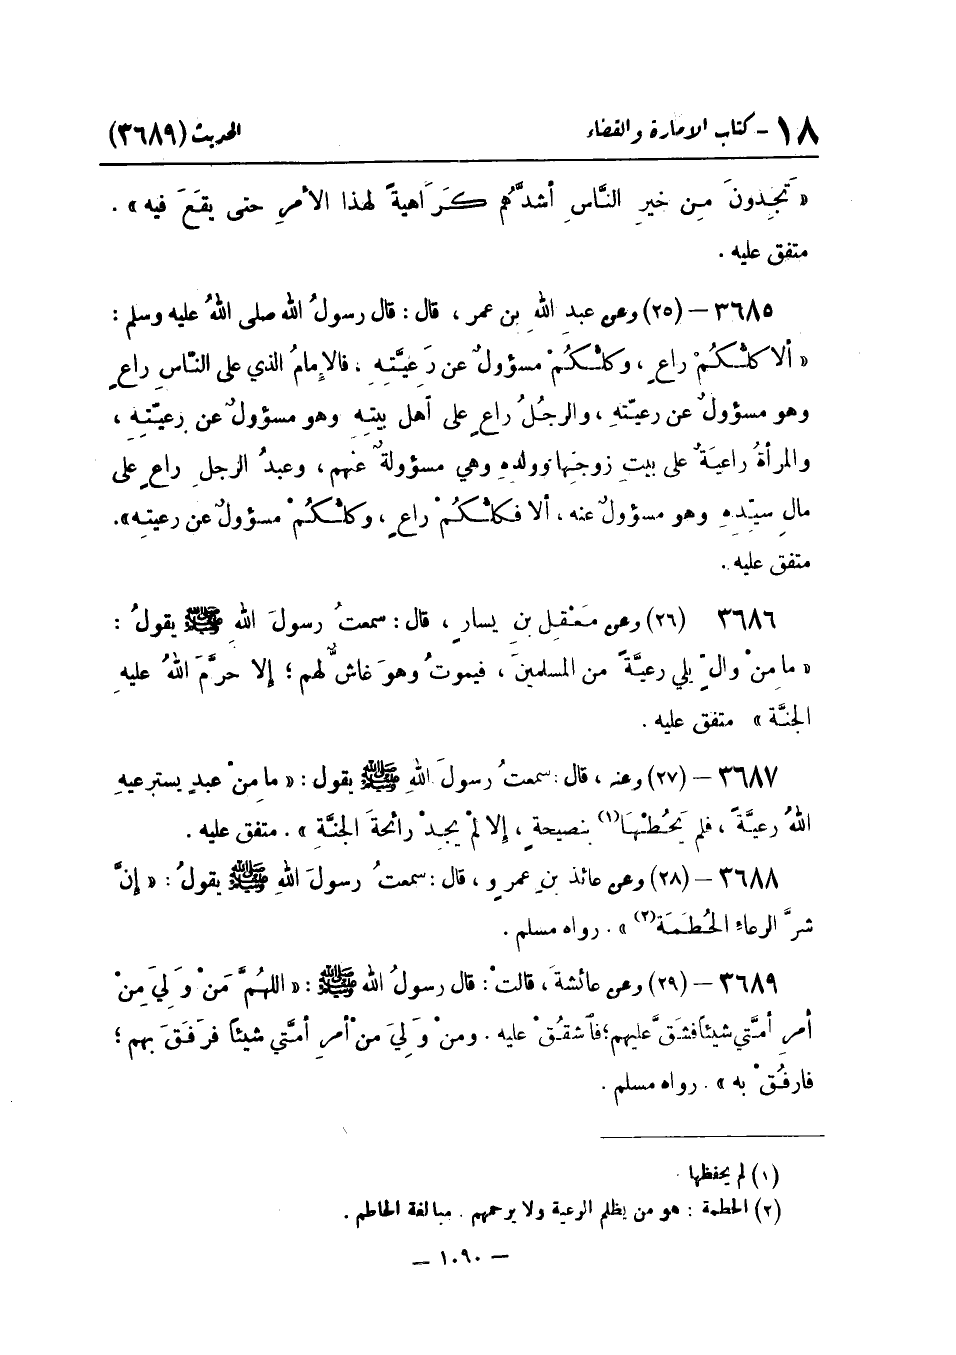 ١٨ - كتاب الامارة والقضاء الحديث (٣٦٨٩)
« تَجِدونَ من خيرِ النَّاسِ أشدَّهُم كَرَاهيةً لهذا الأمرِ حتى يقَعَ فيه » .
متفق عليه .
٣٦٨٥ – (٢٥) وعن عبدِ اللهِ بن عمر ، قال : قال رسولُ الله صلى اللهُ عليه وسلم :
« ألا كلُّكُمْ راعٍ ، وكلُّكُمْ مسؤولٌ عن رَعِيَّتِهِ ، فالإِمامُ الذي على النَّاسِ راعٍ
وهو مسؤولٌ عن رعيّتهِ ، والرجُلُ راعٍ على أهل بيتِهِ وهو مسؤولٌ عن رعيّتهِ ،
والمرأةُ راعيَةٌ على بيتِ زوجِها وولدهِ وهي مسؤولةٌ عنهم ، وعبدُ الرجلِ راعٍ على
مالِ سيّدِهِ وهو مسؤولٌ عنه ، ألا فكلُّكُمْ راعٍ ، وكلُّكُمْ مسؤولٌ عن رعيتهِ».
متفق عليه .
٣٦٨٦ (٢٦) وعن مَعْقِلِ بنِ يسارٍ ، قال : سمعتُ رسولَ اللهِ ﷺ يقولُ :
« ما مِنْ والٍ يلي رعيَّةً من المسلمينَ ، فيموتُ وهوَ غاشٌّ لهم ؛ إلا حرَّمَ اللهُ عليهِ
الجنَّة » متفق عليه .
٣٦٨٧ – (٢٧) وعنه ، قال : سمعتُ رسولَ اللهِ ﷺ يقول : « ما مِنْ عبدٍ يسترعيهِ
اللهُ رعيَّةً ، فلم يَحُطْها(١) بنصيحةٍ ، إلا لمْ يجِدْ رائحةَ الجنَّةِ » . متفق عليه .
٣٦٨٨ – (٢٨) وعن عائذ بنِ عمرٍو ، قال : سمعتُ رسولَ اللهِ ﷺ يقولُ : « إنَّ
شرَّ الرعاءِ الحُطَمَة(٢) » . رواه مسلم .
٣٦٨٩ – (٢٩) وعن عائشةَ ، قالتْ : قال رسولُ الله ﷺ : « اللهُمَّ مَنْ وَلِيَ مِنْ
أمرِ أمَّتي شيئاً فشَقَّ عليهِم ؛ فاشقُقْ عليه . ومنْ وَلِيَ مِنْ أمرِ أمَّتي شيئاً فرَفَقَ بهم ؛
فارفُقْ به » . رواه مسلم .
(١) لم يحفظها .
(٢) الحطمة : هو من يظلم الرعية ولا يرحمهم . مبالغة الحاطم .
– ١٠٩٠ –